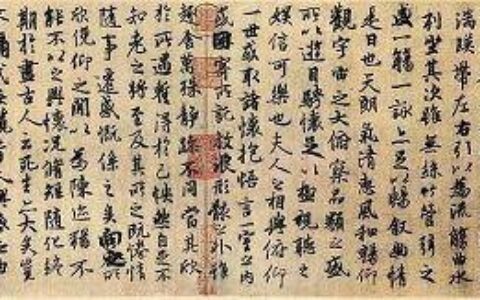 湍暎帶左右引以為流觴曲水
列坐其次雖無絲竹管弦之
盛一觴一詠亦足以暢敘幽情
是日也天朗氣清惠風和暢仰
觀宇宙之大俯察品類之盛
所以遊目騁懷足以極視聽之
娛信可樂也夫人之相與俯仰
一世或取諸懷抱悟言一室之內
或因寄所託放浪形骸之外雖
趣舍萬殊靜躁不同當其欣
於所遇暫得於己怏然自足不
知老之將至及其所之既惓情
隨事遷感慨係之矣向之所
欣俛仰之閒以為陳迹猶不
能不以之興懷況脩短隨化終
期於盡古人云死生亦大矣豈